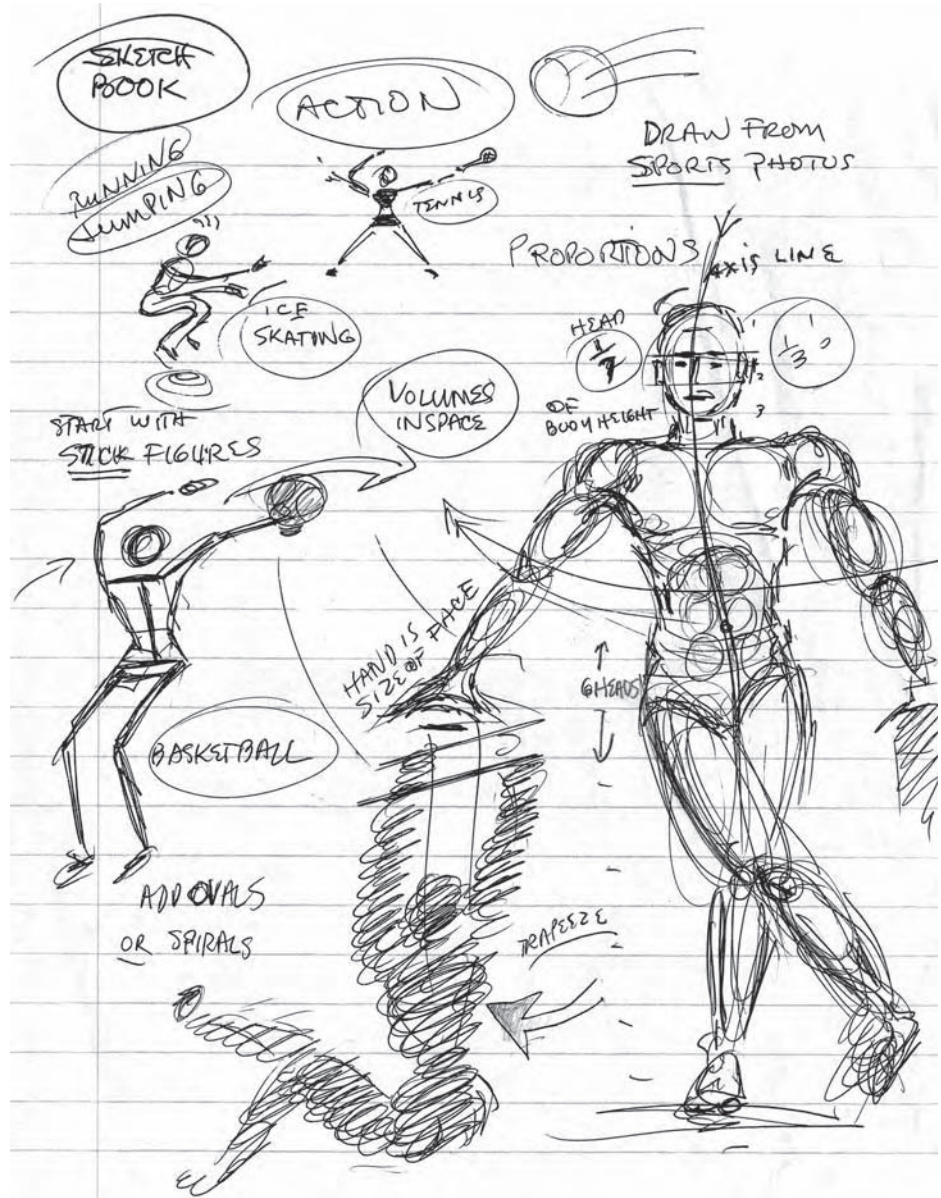 SKETCH
BOOK
ACTION
DRAW FROM
SPORTS PHOTOS
RUNNING
JUMPING
TENNIS
PROPORTIONS
AXIS LINE
ICE
SKATING
HEAD
1/7
OF
BODY HEIGHT
1
2
3
1/3
VOLUMES
IN SPACE
START WITH
STICK FIGURES
HAND IS
SIZE OF FACE
6 HEADS
BASKETBALL
ADD OVALS
OR SPIRALS
TRAPEEZE